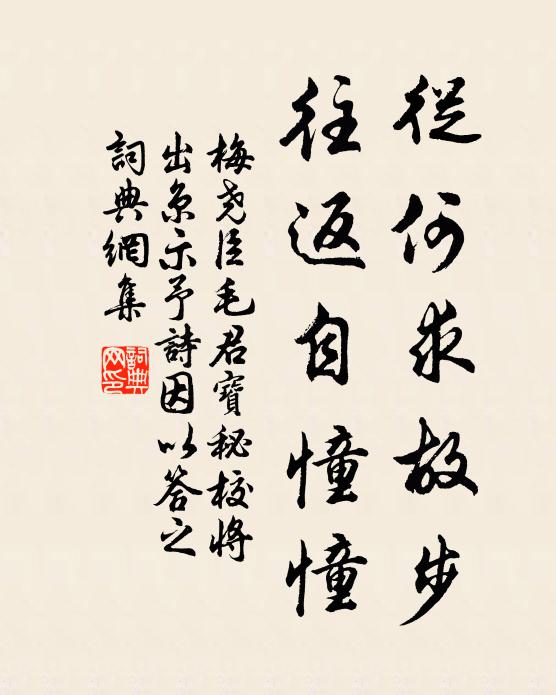 從何求故步
往返自憧憧
梅尭臣毛君寶秘校將
出京示予詩因以答之
詞典網集
詞典
网印